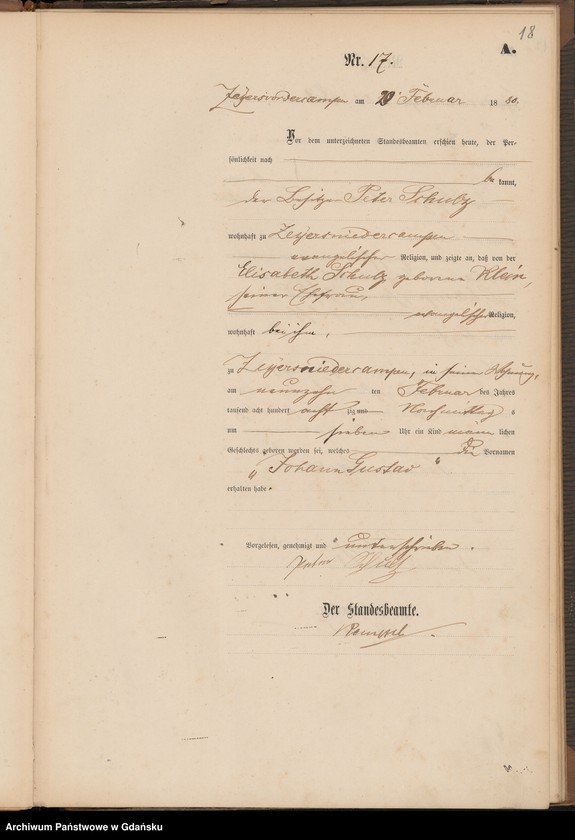 18
A.
Nr. 17.
Zeyersvordercampen am 20 Februar 18 80.
Vor dem unterzeichneten Standesbeamten erschien heute, der Per-
sönlichkeit nach
be kannt,
der Besitzer Peter Schulz
wohnhaft zu Zeyersniedercampen
evangelischer Religion, und zeigte an, daß von der
Elisabeth Schulz geborene Klein,
seiner Ehefrau,
evangelischer Religion,
wohnhaft bei ihm,
zu Zeyersniedercampen, in seiner Wohnung,
am neunzehn ten Februar des Jahres
tausend acht hundert acht zig und Nachmittag s
um sieben Uhr ein Kind männ lichen
Geschlechts geboren worden sei, welches die Vornamen
„Johann Gustav“
erhalten habe.
Vorgelesen, genehmigt und unterschrieben.
Peter Schulz
Der Standesbeamte.
Archiwum Państwowe w Gdańsku